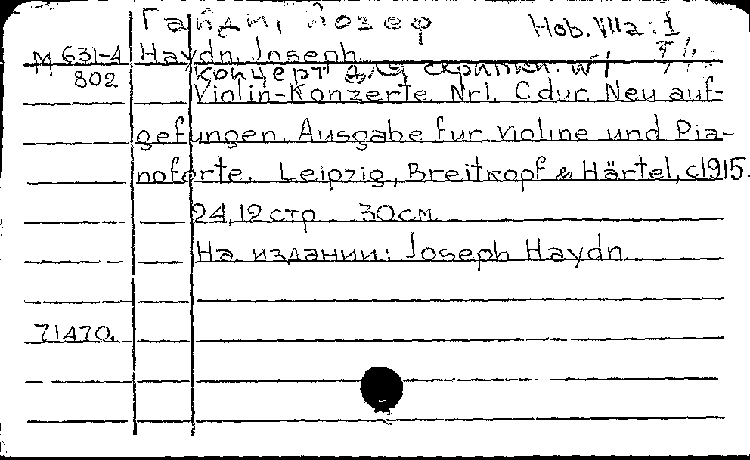 Гайдн, Йозеф
Hob. VIIa:1
М 631-4 Haydn, Joseph.
802 концерт для скрипки. №1
Violin-Konzerte Nr1. Cdur. Neu auf-
gefungen. Ausgabe fur Violine und Pia-
noforte. Leipzig, Breitkopf & Härtel, c1915.
24,12 стр 30см.
На издании: Joseph Haydn
71470.